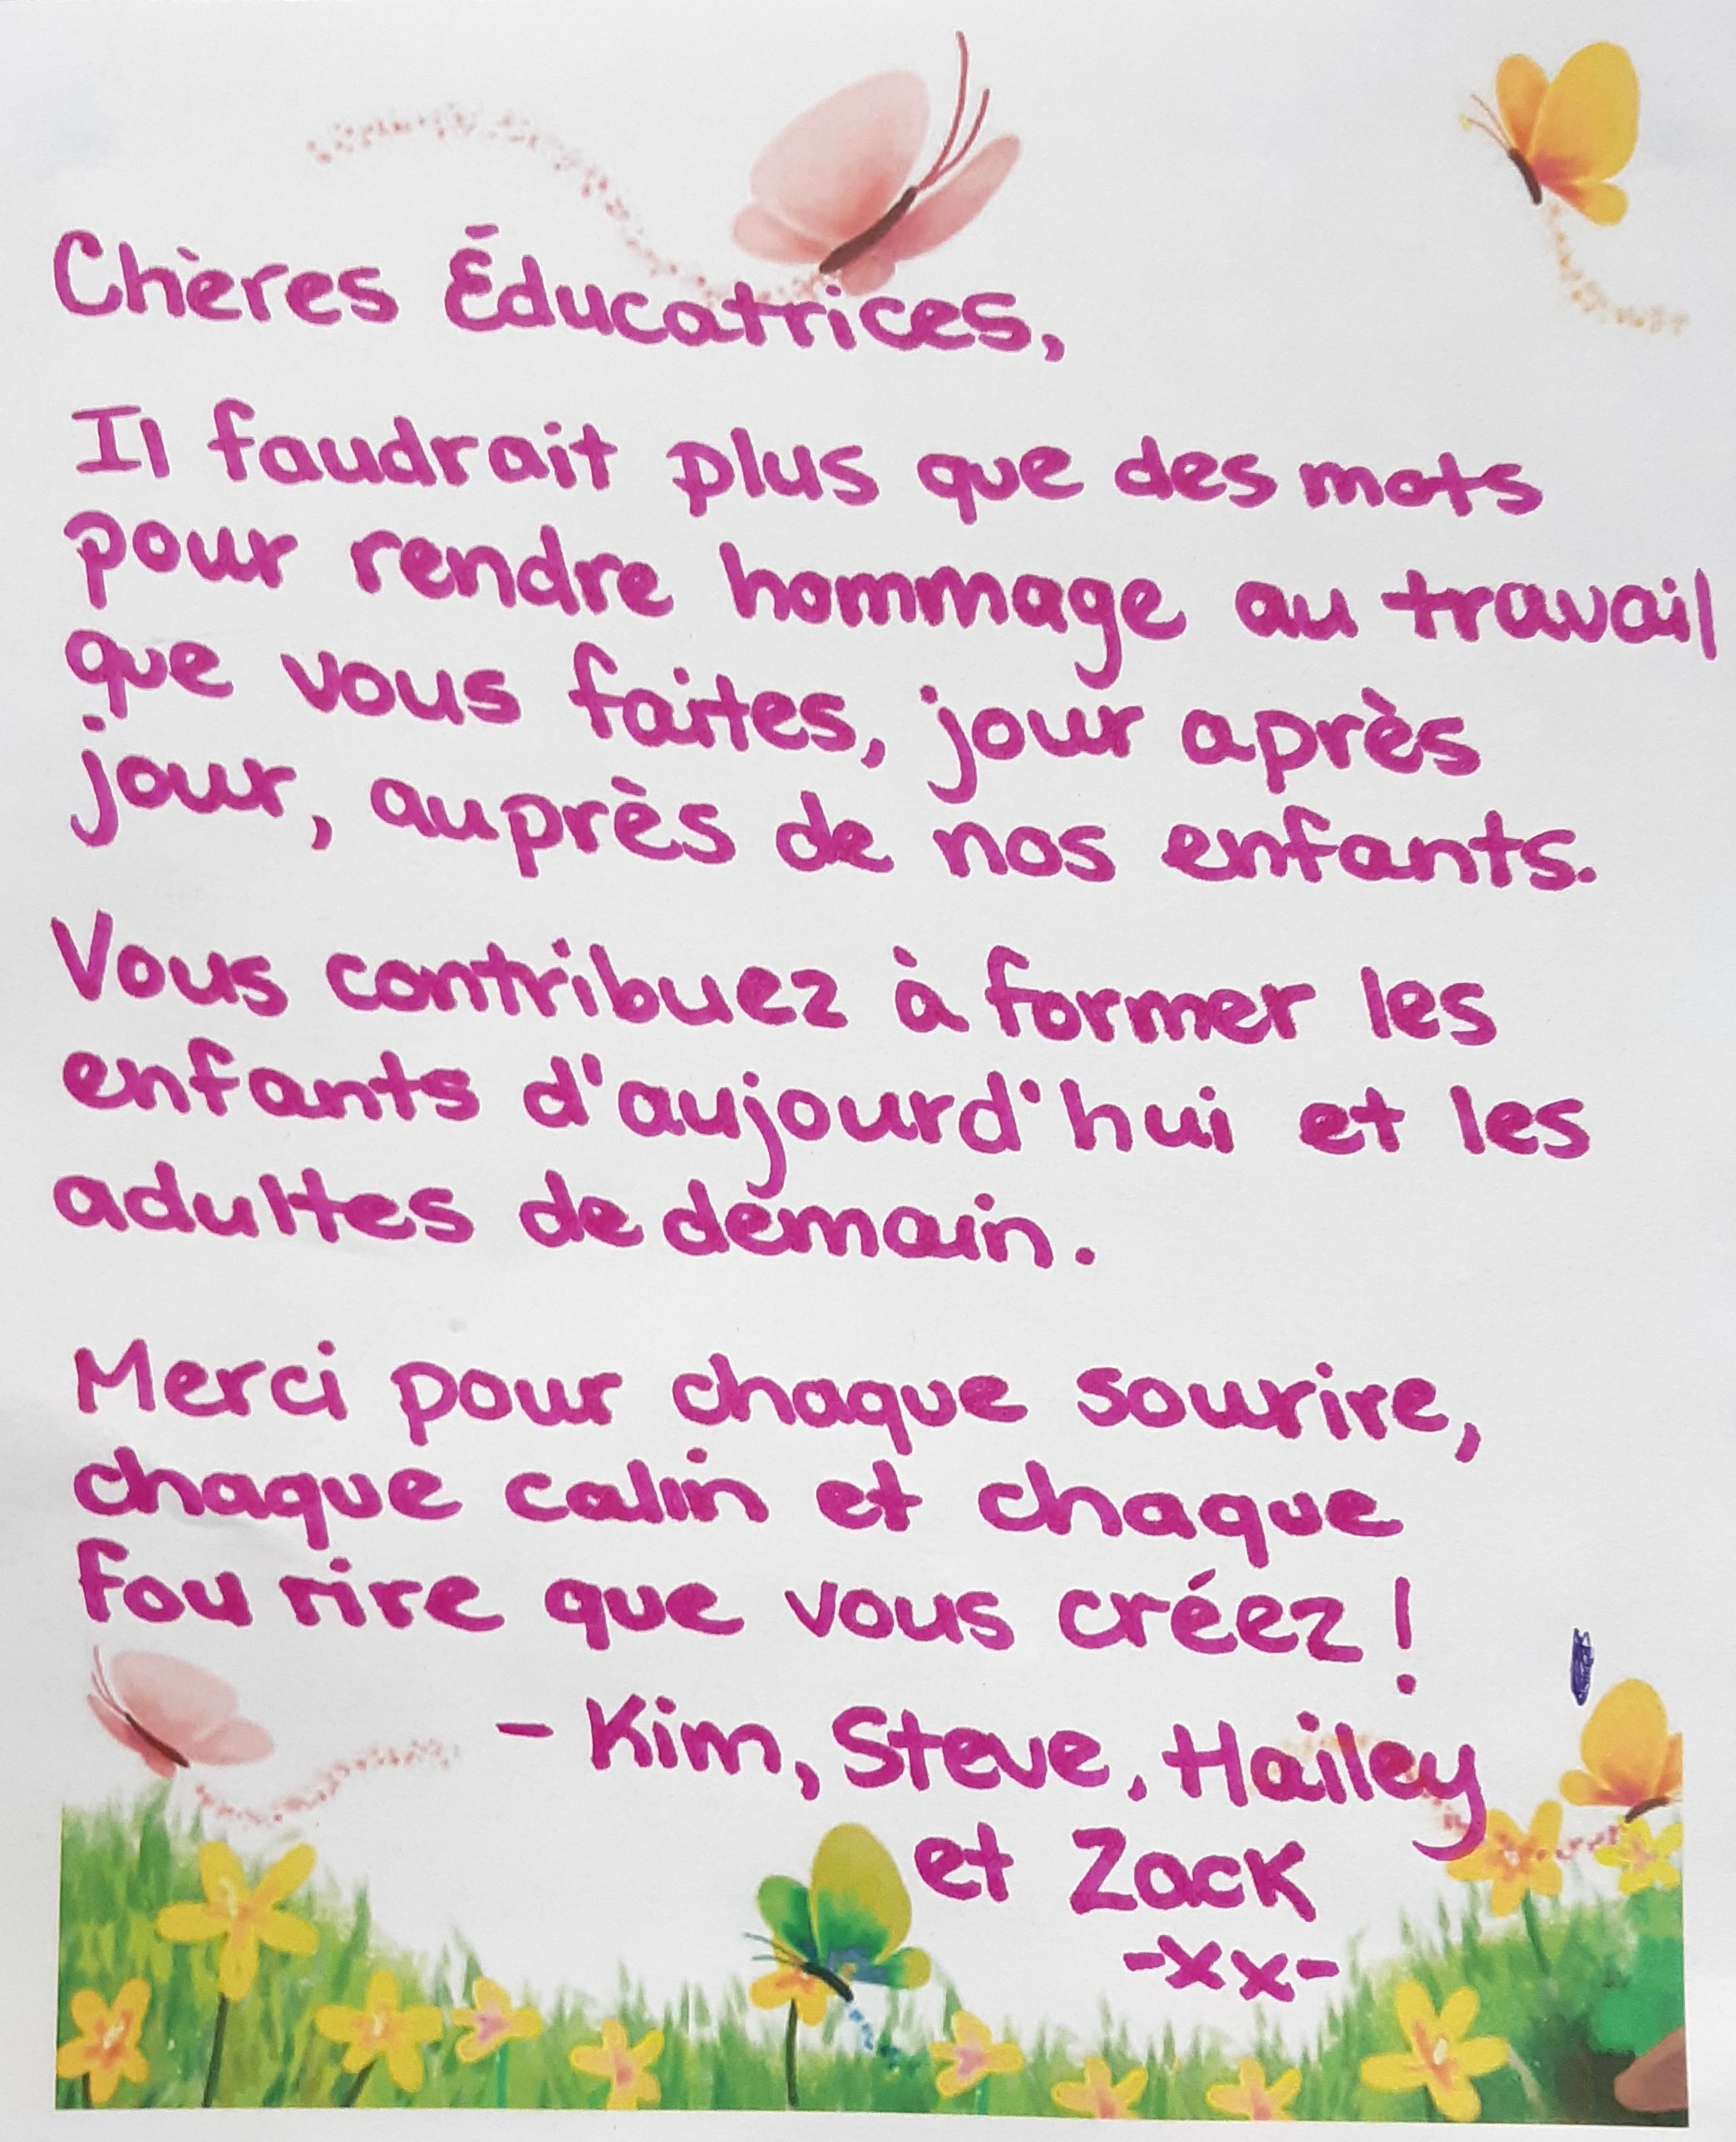 Chères Éducatrices,
Il faudrait plus que des mots
pour rendre hommage au travail
que vous faites, jour après
jour, auprès de nos enfants.
Vous contribuez à former les
enfants d'aujourd'hui et les
adultes de demain.
Merci pour chaque sourire,
chaque calin et chaque
fou rire que vous créez!
- Kim, Steve, Hailey
et Zack
-xx-